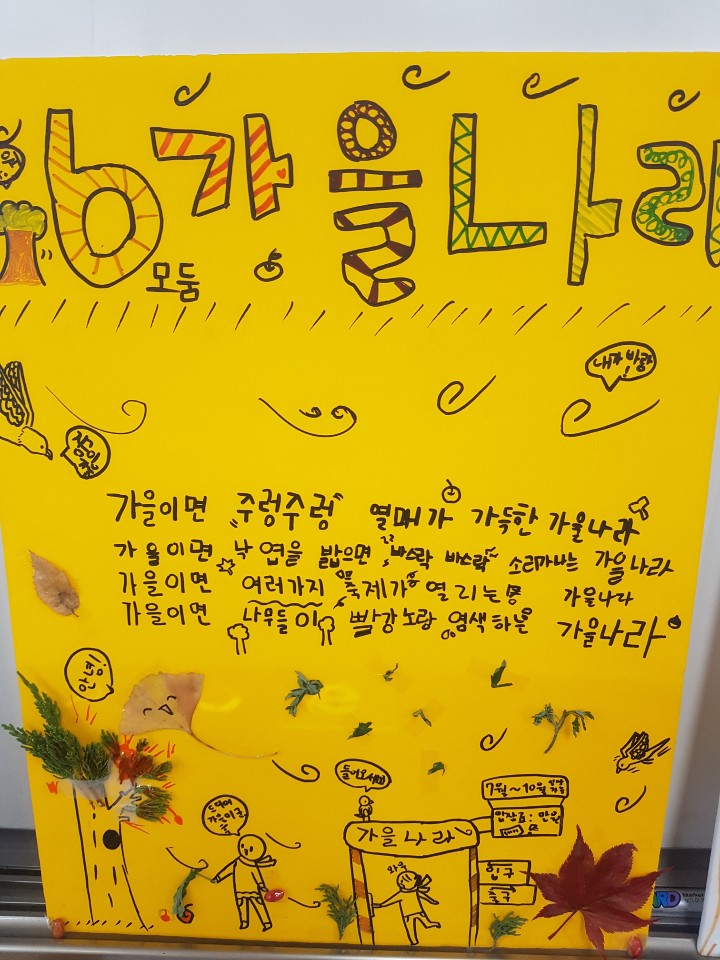 6 가을나라
모둠
내가 바람!
가을이면 "주렁주렁" 열매가 가득한 가을나라
가을이면 낙엽을 밟으면 바스락 바스락 소리가나는 가을나라
가을이면 여러가지 축제가 열리는 가을나라
가을이면 나무들이 빨강노랑 염색하는 가을나라
안녕!
들어오세요
7월~10월
입장료: 만원
가을나라
와우
입구
출구